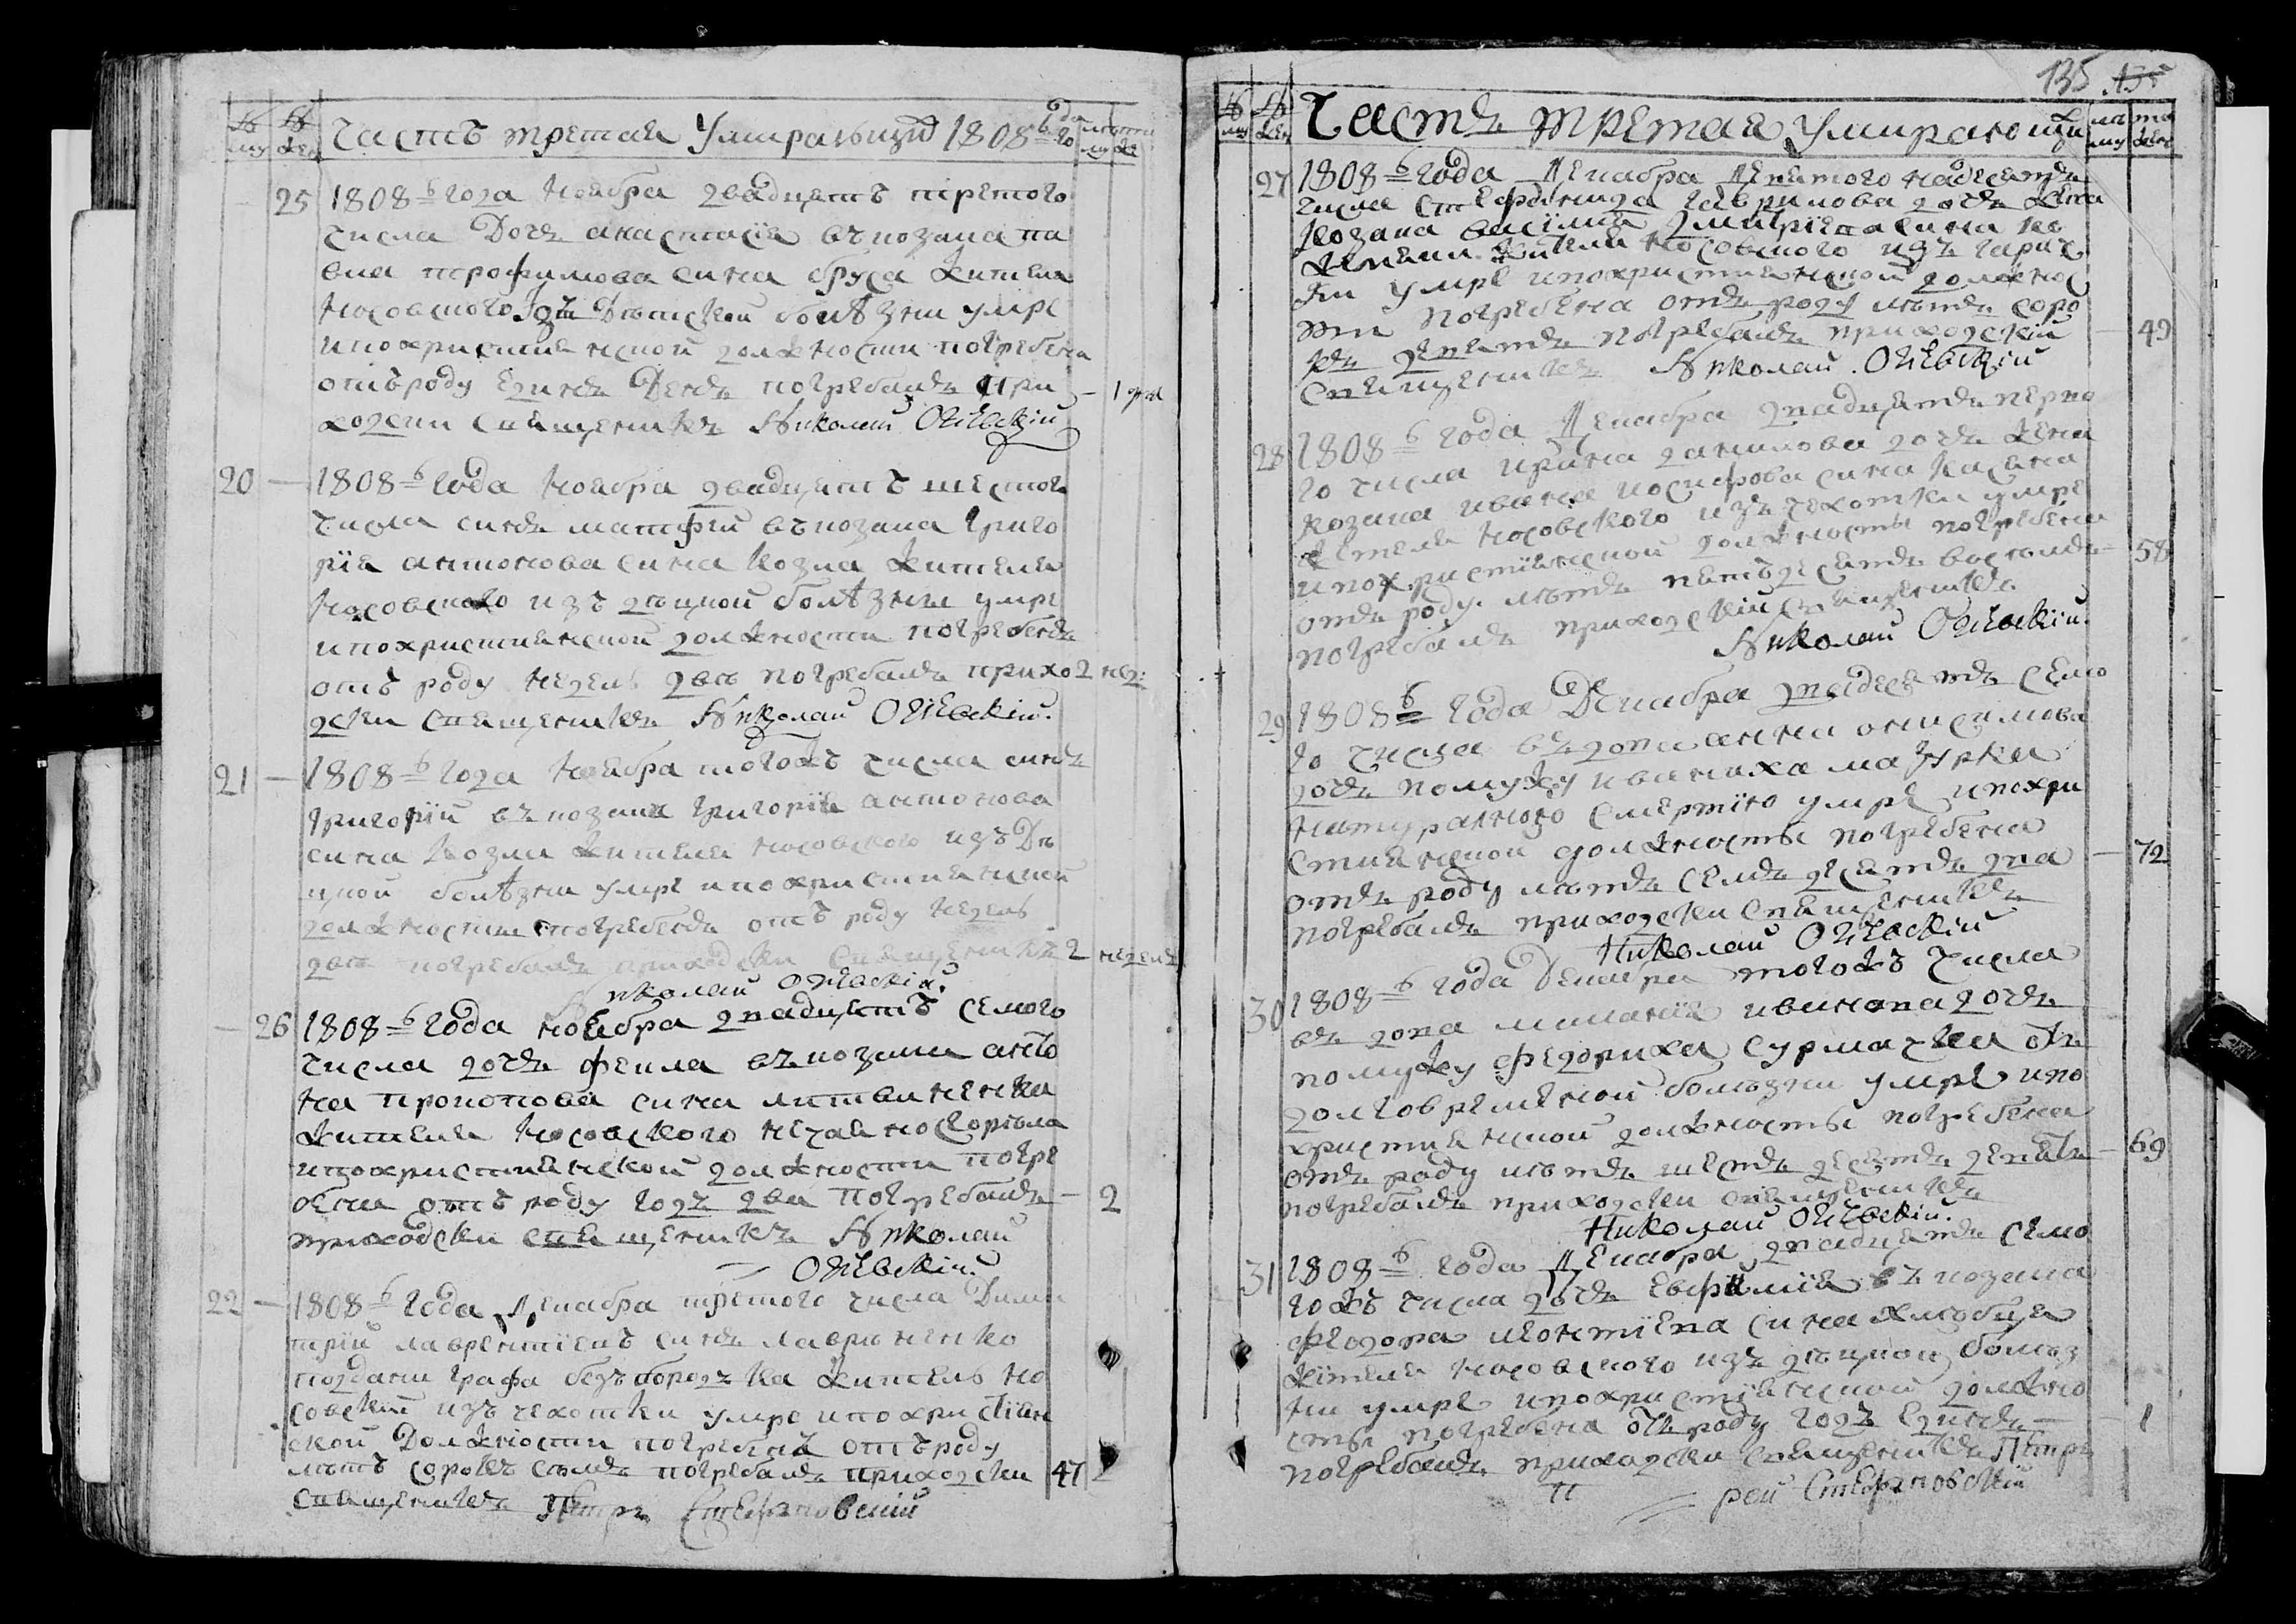 Часть третая Умирающих 1808-го года лета
му же
25 1808 года Ноября двадцать третого
числа дочь анастасія въ козака па
вла трофимова сина бруса жителя
Носовского изъ детской болѣзни умре
и похристиянской должности погребена
отъ роду единъ день погребалъ при 1 день
ходски священникъ Николай Огіевскій
20 1808 года Ноября двадцать шестого
числа синъ матфей въ козака григо
рія антонова сина козла жителя
Носовского изъ децкой болѣзни умре
и похристиянской должности погребенъ
отъ роду недель две погребалъ прихо 2 нед:
дски священникъ Николай Огіевскій.
21 1808 года Ноября тогожъ числа синъ
григорій въ козака григорія антонова
сина козла жителя Носовского изъ де
цкой болѣзни умре и похристиянской
должности погребенъ отъ роду недель
две погребалъ приходски священникъ 2 недель
Николай Огіевскій.
26 1808 года ноября двадцать семого
числа дочь фекла въ козака анто
на прокопова сина литвиненка
жителя Носовского нечаяно сгорѣла
и похристиянской должности погре
бена отъ роду годъ два погребалъ 2
приходски священикъ Николай
Огіевскій
22 1808 года Декабря третого числа Дими
трій лаврентіевъ синъ лавриненко
поддани графа безъбородька житель но
совскій изъ чехотки умре и похристіян
ской должности погребенъ отъ роду
летъ сорокъ семъ погребалъ приходски 47
священикъ Петръ Стефановский
135
Часть третая Умирающи лета
му жен
27 1808 года Декабря девятого надесять
числа Стефанида гавр​илова дочь жена
козака василия дмитріева сина ко
жителя Носовского изъ гаряч
ки умре и похристиянской должнос
ти погребена отъ роду летъ соро
къ девять погребалъ приходскій 49
священикъ Николай Огіевскій
28 1808 года Декабря двадцять перво
го числа ирина данилова дочь жена
козака ивана иосифова сина
жителя Носовского изъ чехотки умре
и похристіянской должносты погребена
отъ роду летъ пятьдесятъ восемъ 58
погребалъ приходскій священикъ
Николай Огіевскій.
29 1808 года Декабря двадцять семо
го числа вдова анна онисимова
дочь помужу иваниха мазурка
натуралною смертію умре и похри
стиянской должносты погребена
отъ роду летъ семъ десятъ два 72
погребалъ приходски священикъ
Николай Огіевскій
30 1808 года Декабря тогожъ числа
вдова маланія иванова дочь
помужу федориха сурмачка отъ
долговременной болезни умре и по
християнской должносты погребена
отъ роду летъ шесть десятъ девять 69
погребалъ приходски священикъ
Николай Огіевскій.
31 1808 года Декабря двадцять семо
гожъ числа дочь Евфимія въ козака
федора леонтіева сина хлюбця
жителя Носовского изъ децкой болез
ни умре и похристіянской должно
сты погребена отъ роду годъ единъ 1
погребалъ приходски священикъ Петръ
Стефановскій